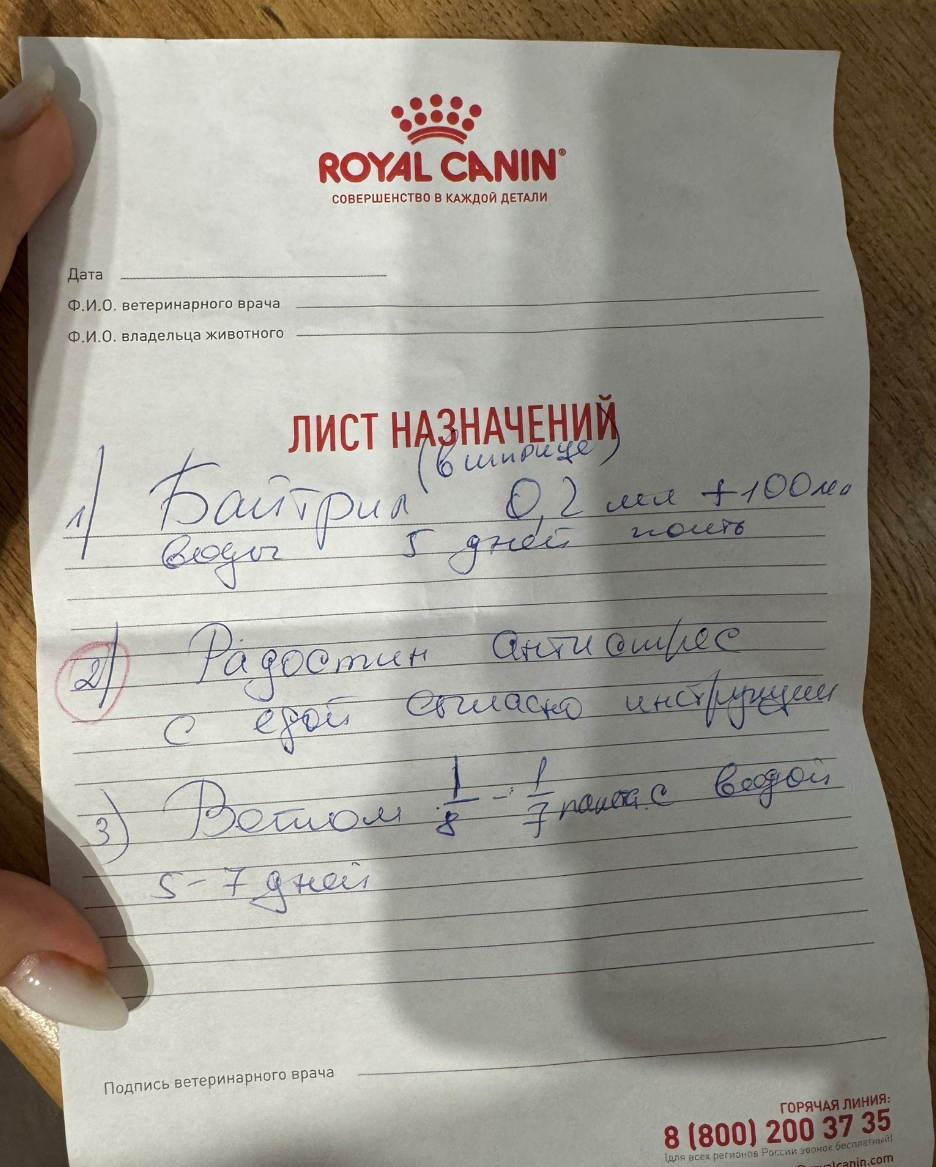 ROYAL CANIN®
СОВЕРШЕНСТВО В КАЖДОЙ ДЕТАЛИ
Дата
Ф.И.О. ветеринарного врача
Ф.И.О. владельца животного
ЛИСТ НАЗНАЧЕНИЙ
(в шприце)
1) Байтрил 0,2 мл + 100 мл
воды 5 дней поить
2) Радостин антистрес
с едой согласно инструкции
3) Ветом 1/8 - 1/7 с водой
5-7 дней
Подпись ветеринарного врача
ГОРЯЧАЯ ЛИНИЯ:
8 (800) 200 37 35
(для всех регионов России звонок бесплатный)
royalcanin.com